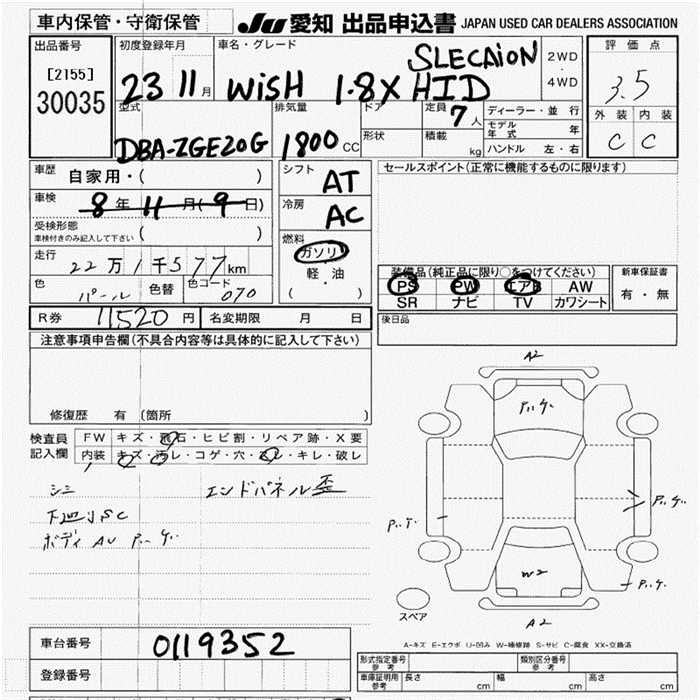 車内保管・守衛保管 JU 愛知 出品申込書 JAPAN USED CAR DEALERS ASSOCIATION
出品番号 初度登録年月 車名・グレード 評価点
[2155] 30035
23 11月 WiSH 1.8X HID SLECAiON
2WD・4WD
3.5
外装 内装
C C
型式 排気量 ドア 定員 7人 ディーラー・並行
モデル年式 年
形状 積載 kg ハンドル 左・右
DBA-ZGE20G 1800 CC
車歴 自家用・( )
シフト AT
セールスポイント(正常に機能するものに限ります)
車検 8年 11月(9日)
冷房 AC
受検形態
車検付きのみ記入して下さい ( )
燃料 ガソリン
軽・油
( )
走行 22万1千577km
色 パール 色替 色コード 070
装備品(純正品に限り○をつけてください) 新車保証書
PS PW エアB AW 有・無
SR ナビ TV カワシート
R券 11520円 名変期限 月 日
後日品
注意事項申告欄(不具合内容等は具体的に記入して下さい)
修復歴 有 (箇所 )
検査員記入欄 FW キズ・飛石・ヒビ割・リペア跡・X要
内装 キズ・汚レ・コゲ・穴・スレ・キレ・破レ
シミ エンドパネル歪
下廻りSC
ボディ AU P.ケ.
A2
P.ケ.
P.ケ.
P.ケ.
W2
P.ケ.
A2
スペア
A-キズ E-エクボ U-凹み W-補修跡 S-サビ C-腐食 XX-交換済
車台番号 0119352
登録番号
形式指定番号 参考 類別区分番号 参考
車庫証明用 参考 長さ cm 幅 cm 高さ cm